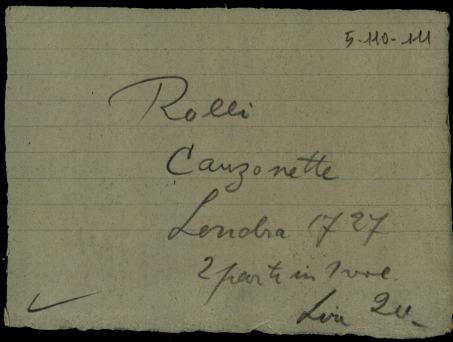 5-110-111
Rolli
Canzonette
Londra 1727
2 parti in 1 vol.
Lire 20_